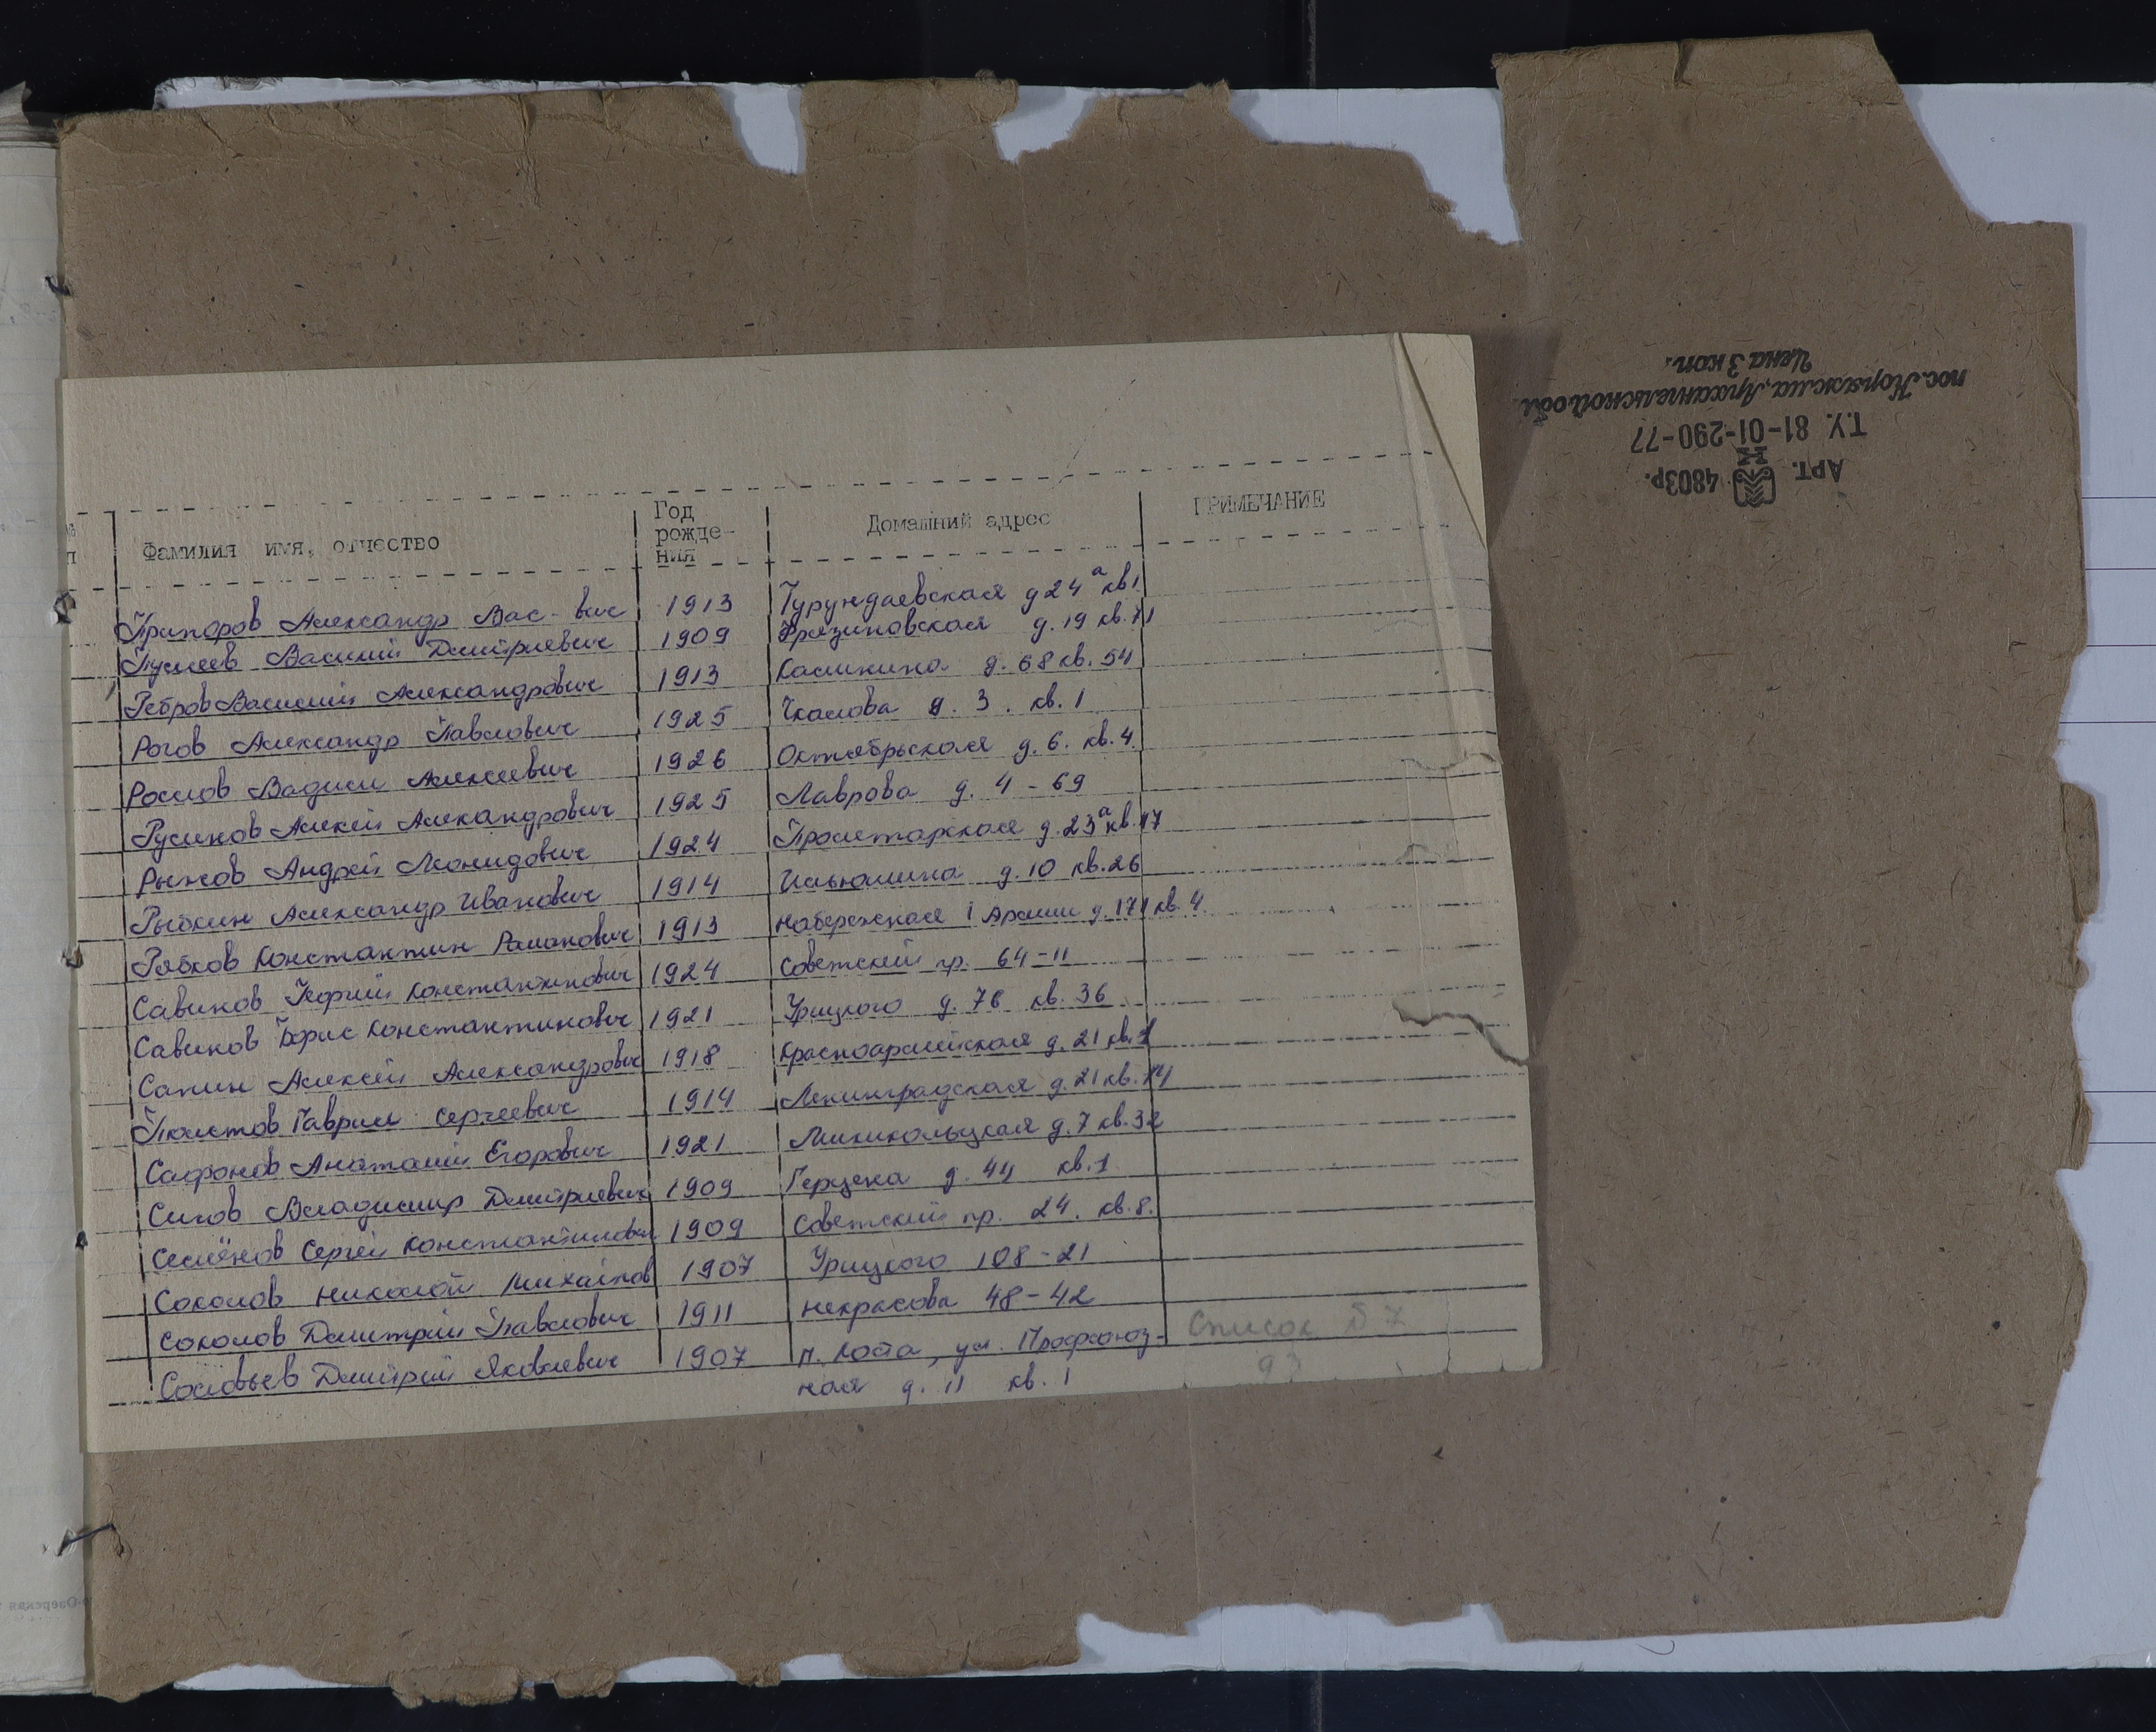 Фамилия имя, отчество Год рожде- ния Домашний адрес ПРИМЕЧАНИЕ
Припоров Александр Вас-вич 1913 Турундаевская д 24а кв 1
Василий Дмитриевич 1909 Фрязиновская д. 19 кв. 71
Ребров Василий Александрович 1913 Калинина д. 68 кв. 54
Рогов Александр Павлович 1925 Чкалова д. 3. кв. 1
Рослов Вадим Алексеевич 1926 Октябрьская д. 6. кв. 4
Русинов Алексей Александрович 1925 Лаврова д. 4-69
Рыжов Андрей Леонидович 1924 Пролетарская д. 23а кв. 17
Рыбкин Александр Иванович 1914 Ильюшина д. 10 кв. 26
Рябков Константин Романович 1913 Набережная 1 Армии д. 171 кв. 4
Савинов Георгий Константинович 1924 Советский пр. 64-11
Савинов Борис Константинович 1921 Урицкого д. 76 кв. 36
Сапин Алексей Александрович 1918 Красноармейская д. 21 кв. 1
Гаврил Сергеевич 1914 Ленинградская д. 21 кв. 74
Сафонов Анатолий Егорович 1921 д. 7 кв. 32
Силов Владимир Дмитриевич 1909 Герцена д. 44 кв. 1
Семёнов Сергей Константинович 1909 Советский пр. 24. кв. 8.
Соколов Николай Михайлов 1907 Урицкого 108-21
Соколов Дмитрий Павлович 1911 Некрасова 48-42
Соловьев Дмитрий Яковлевич 1907 п. Лоста, ул. Профсоюз-
ная д. 11 кв. 1
Список № 7
93
Арт. 4803р.
Т.У. 81-01-290-77
пос. Коряжма, Архангельской обл.
Цена 3 коп.